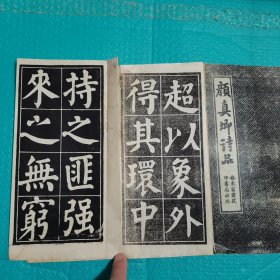 顏真卿詩品
超以象外
得其環中
持之匪强
來之無窮